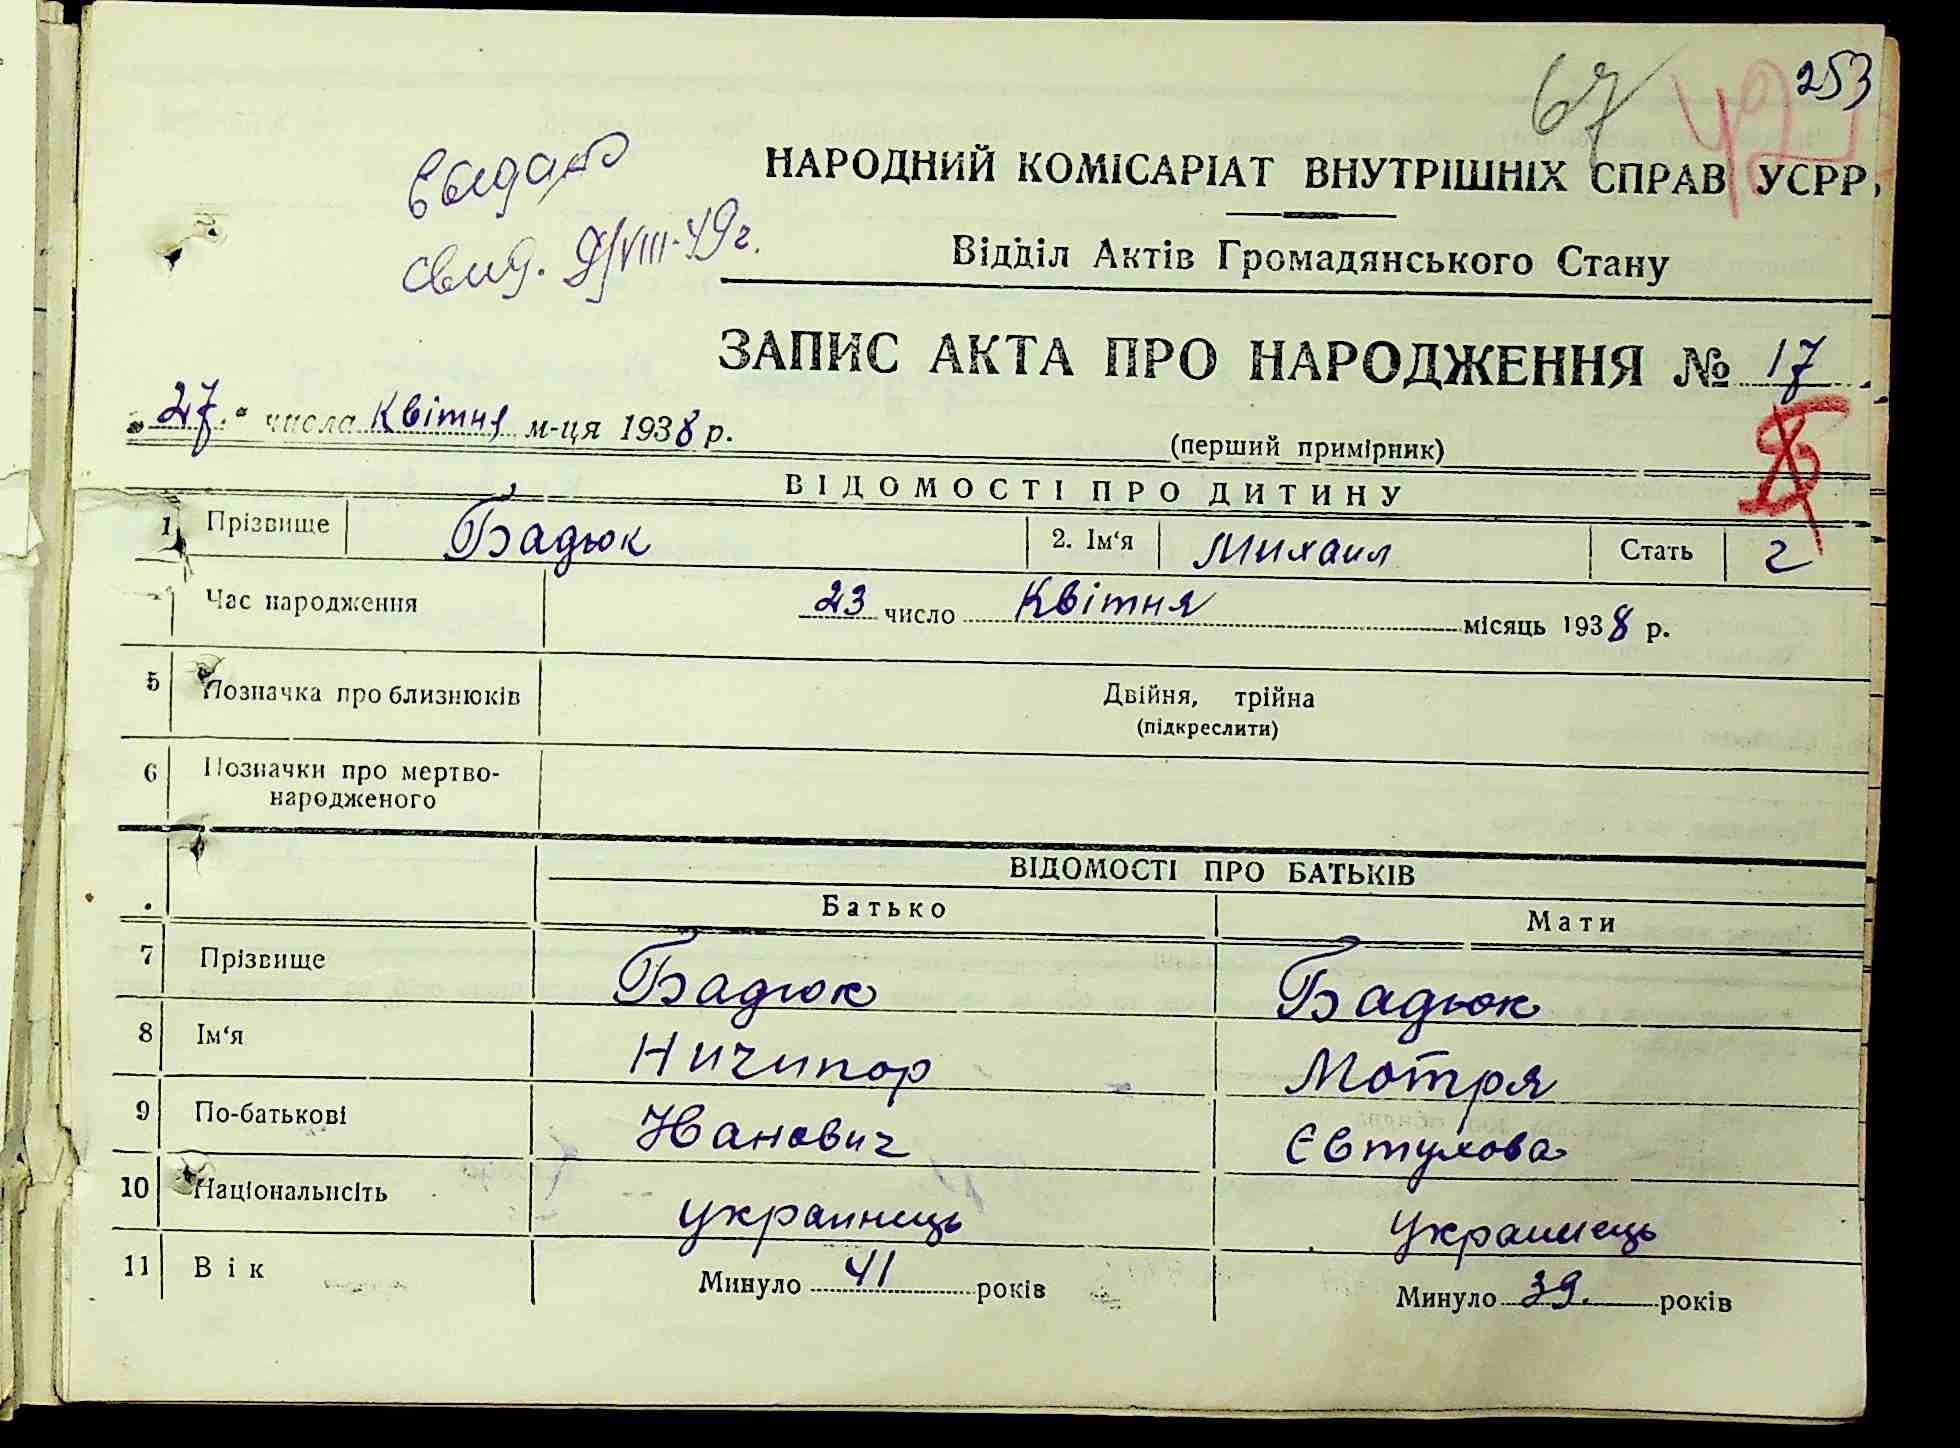 67 42 253
видано
свид. 9/VIII-49г.
НАРОДНИЙ КОМІСАРІАТ ВНУТРІШНІХ СПРАВ УСРР
Відділ Актів Громадянського Стану
ЗАПИС АКТА ПРО НАРОДЖЕННЯ № 17
„27“ числа Квітня м-ця 1938 р.
(перший примірник)
ВІДОМОСТІ ПРО ДИТИНУ
1 Прізвище Бадюк 2. Ім‘я Михаил Стать 2
Час народження 23 число Квітня місяць 1938 р.
5 Позначка про близнюків Двійня, трійна
(підкреслити)
6 Позначки про мертво-
народженого
ВІДОМОСТІ ПРО БАТЬКІВ
Батько Мати
7 Прізвище Бадюк Бадюк
8 Ім‘я Ничипор Мотря
9 По-батькові Иванович Євтухова
10 Національнсіть украинець украинець
11 Вік Минуло 41 років Минуло 39. років